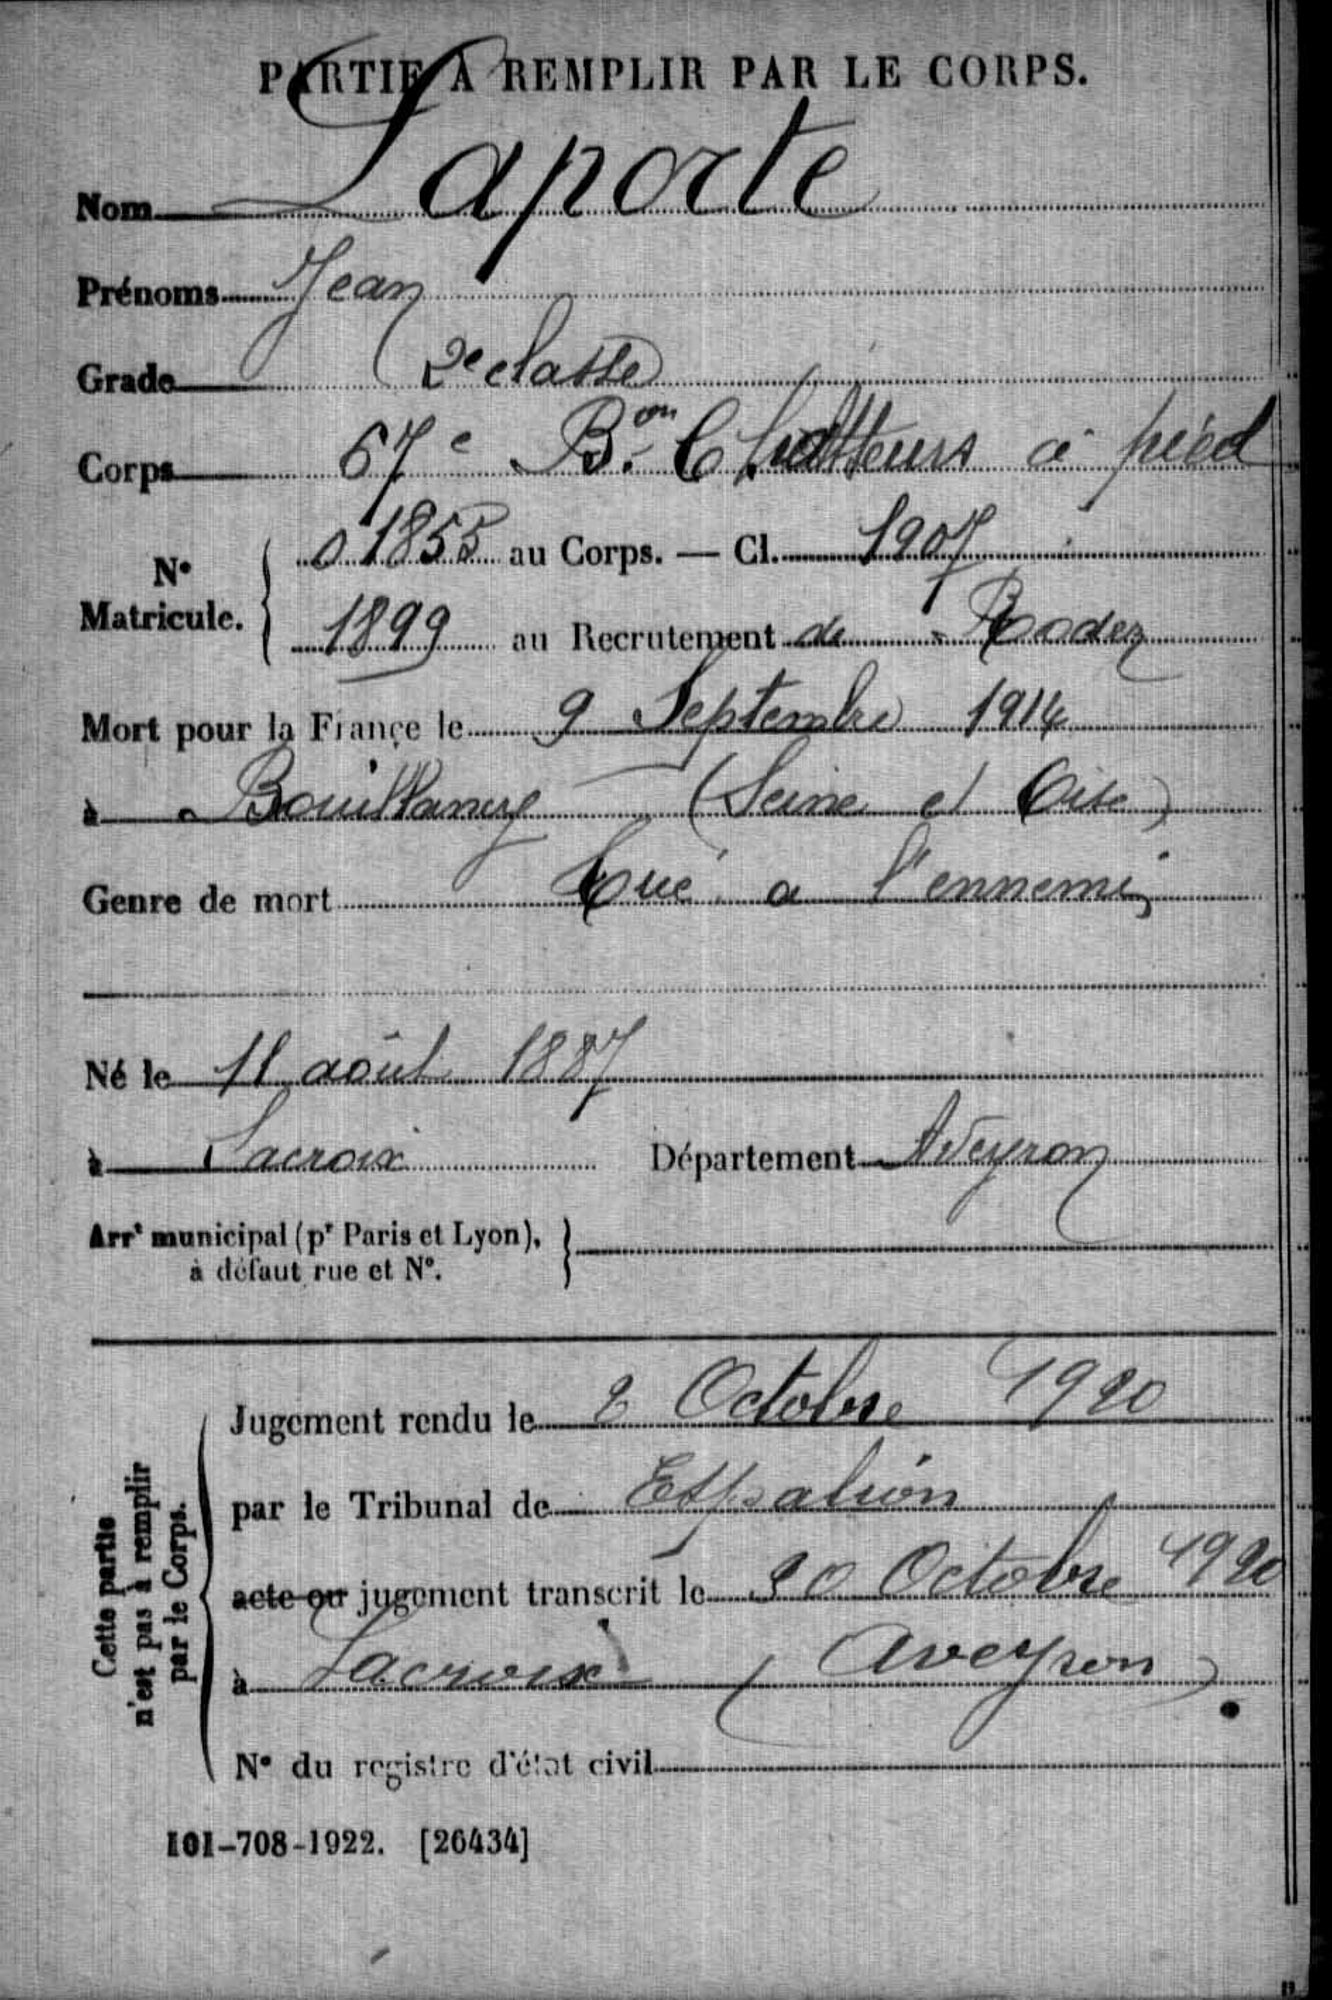 PARTIE À REMPLIR PAR LE CORPS.
Nom Laporte
Prénoms Jean
Grade 2e classe
Corps 67e Bon Chasseurs à pied
N° Matricule. { 01855 au Corps. — Cl. 1907
1899 au Recrutement de Rodez
Mort pour la France le 9 Septembre 1914
à Bouillancy (Seine et Oise)
Genre de mort Tué a l'ennemi
Né le 11 août 1887
à Lacroix Département Aveyron
Arrt municipal (pr Paris et Lyon), }
à défaut rue et N°.
Cette partie
n'est pas à remplir
par le Corps.
Jugement rendu le 2 Octobre 1920
par le Tribunal de Espalion
acte ou jugement transcrit le 20 Octobre 1920
à Lacroix (Aveyron)
N° du registre d'état civil
101-708-1922. [26434]